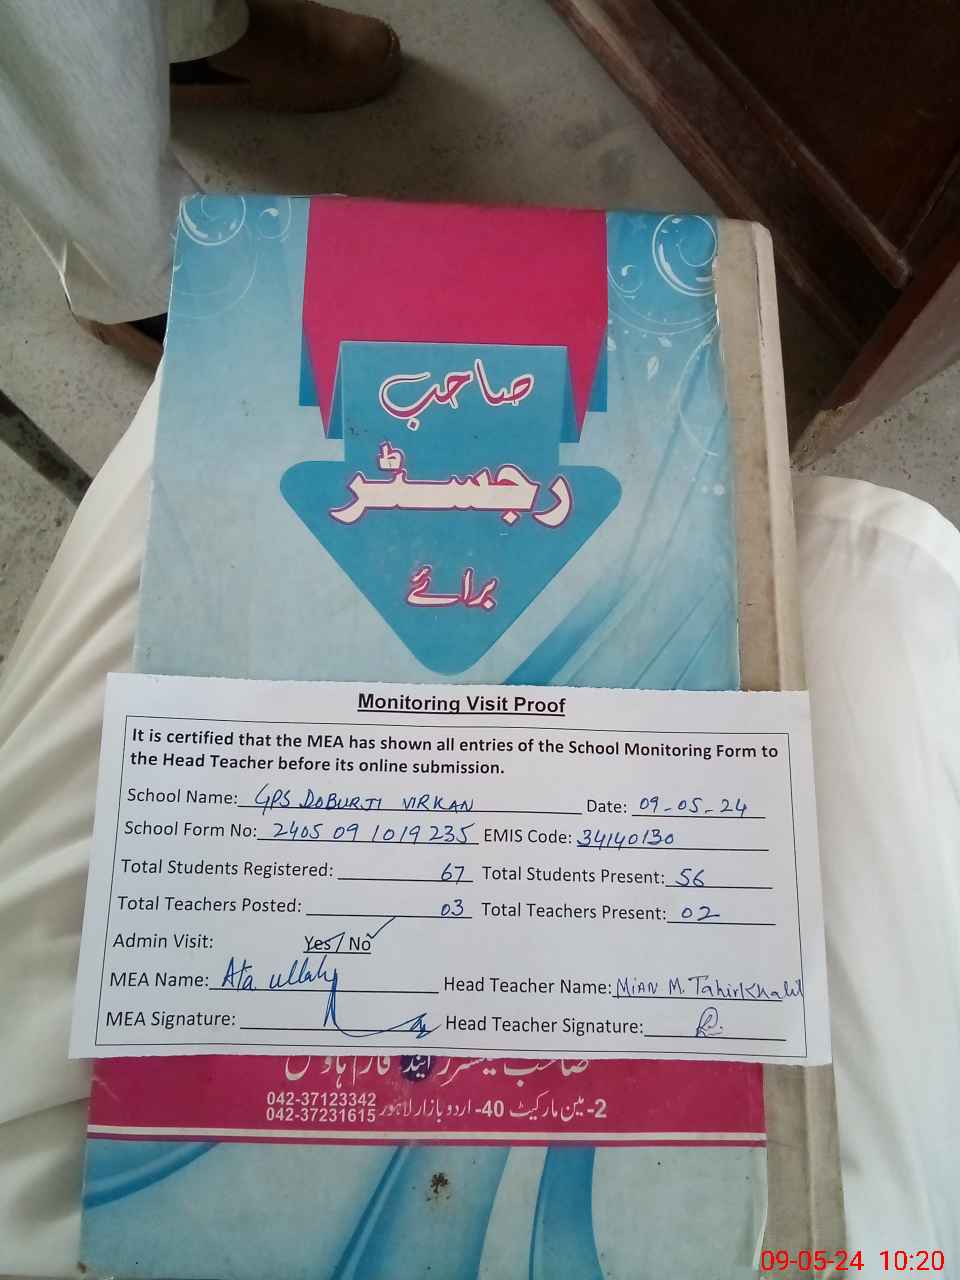 صاحب
رجسٹر
برائے
Monitoring Visit Proof
It is certified that the MEA has shown all entries of the School Monitoring Form to
the Head Teacher before its online submission.
School Name: GPS DOBURJI VIRKAN Date: 09-05-24
School Form No: 2405 09 1019 235 EMIS Code: 34140130
Total Students Registered: 67 Total Students Present: 56
Total Teachers Posted: 03 Total Teachers Present: 02
Admin Visit: Yes/No
MEA Name: Ata ullah Head Teacher Name: MIAN M. Tahir Khalil
MEA Signature: Head Teacher Signature:
042-37123342
042-37231615
2-مین مارکیٹ 40-اردو بازار لاہور
09-05-24 10:20